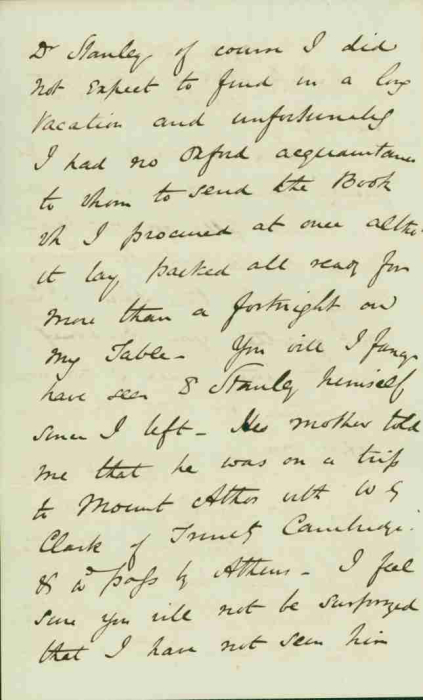 Dr Stanley of course I did
not expect to find in a long
Vacation and unfortunately
I had no Oxford acquaintance
to whom to send the Book
wh I procured at once altho'
it lay packed all ready for
more than a fortnight on
my Table - You will I fancy
have seen Stanley himself
since I left - His mother told
me that he was on a trip
to Mount Athos with W G
Clark of Trinity Cambridge.
& wd pass by Athens - I feel
sure you will not be surprized
that I have not seen him